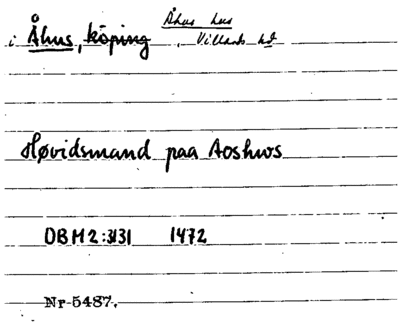 Åhus hus
i Åhus, köping, Villands hd
Høvidsmand paa Aoshws
DBM2:3131 1472
Nr 5487.